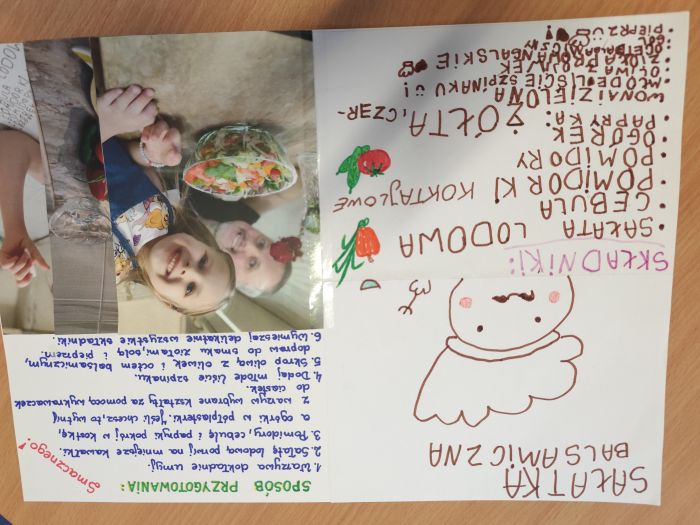 SAŁATKA
BALSAMICZNA
SKŁADNIKI:
• SAŁATA LODOWA
• CEBULA
• POMIDORKI KOKTAJLOWE
• POMIDORY
• OGÓREK
• PAPRYKA: ŻÓŁTA, CZER-
WONA I ZIELONA
• MŁODE LIŚCIE SZPINAKU
• OLIWA Z OLIWEK
• ZIOŁA PROWANSALSKIE
• OCET BALSAMICZNY
• SÓL
• PIEPRZ
SPOSÓB PRZYGOTOWANIA:
1. Warzywa dokładnie umyj.
2. Sałatę lodową porwij na mniejsze kawałki.
3. Pomidory, cebulę i papryki pokrój w kostkę,
a ogórki w półplasterki. Jeśli chcesz, to wytnij
z warzyw wybrane kształty za pomocą wykrawaczek
do ciastek.
4. Dodaj młode liście szpinaku.
5. Skrop oliwą z oliwek i octem balsamicznym,
dopraw do smaku ziołami, solą i pieprzem.
6. Wymieszaj delikatnie wszystkie składniki.
Smacznego!
LODOW